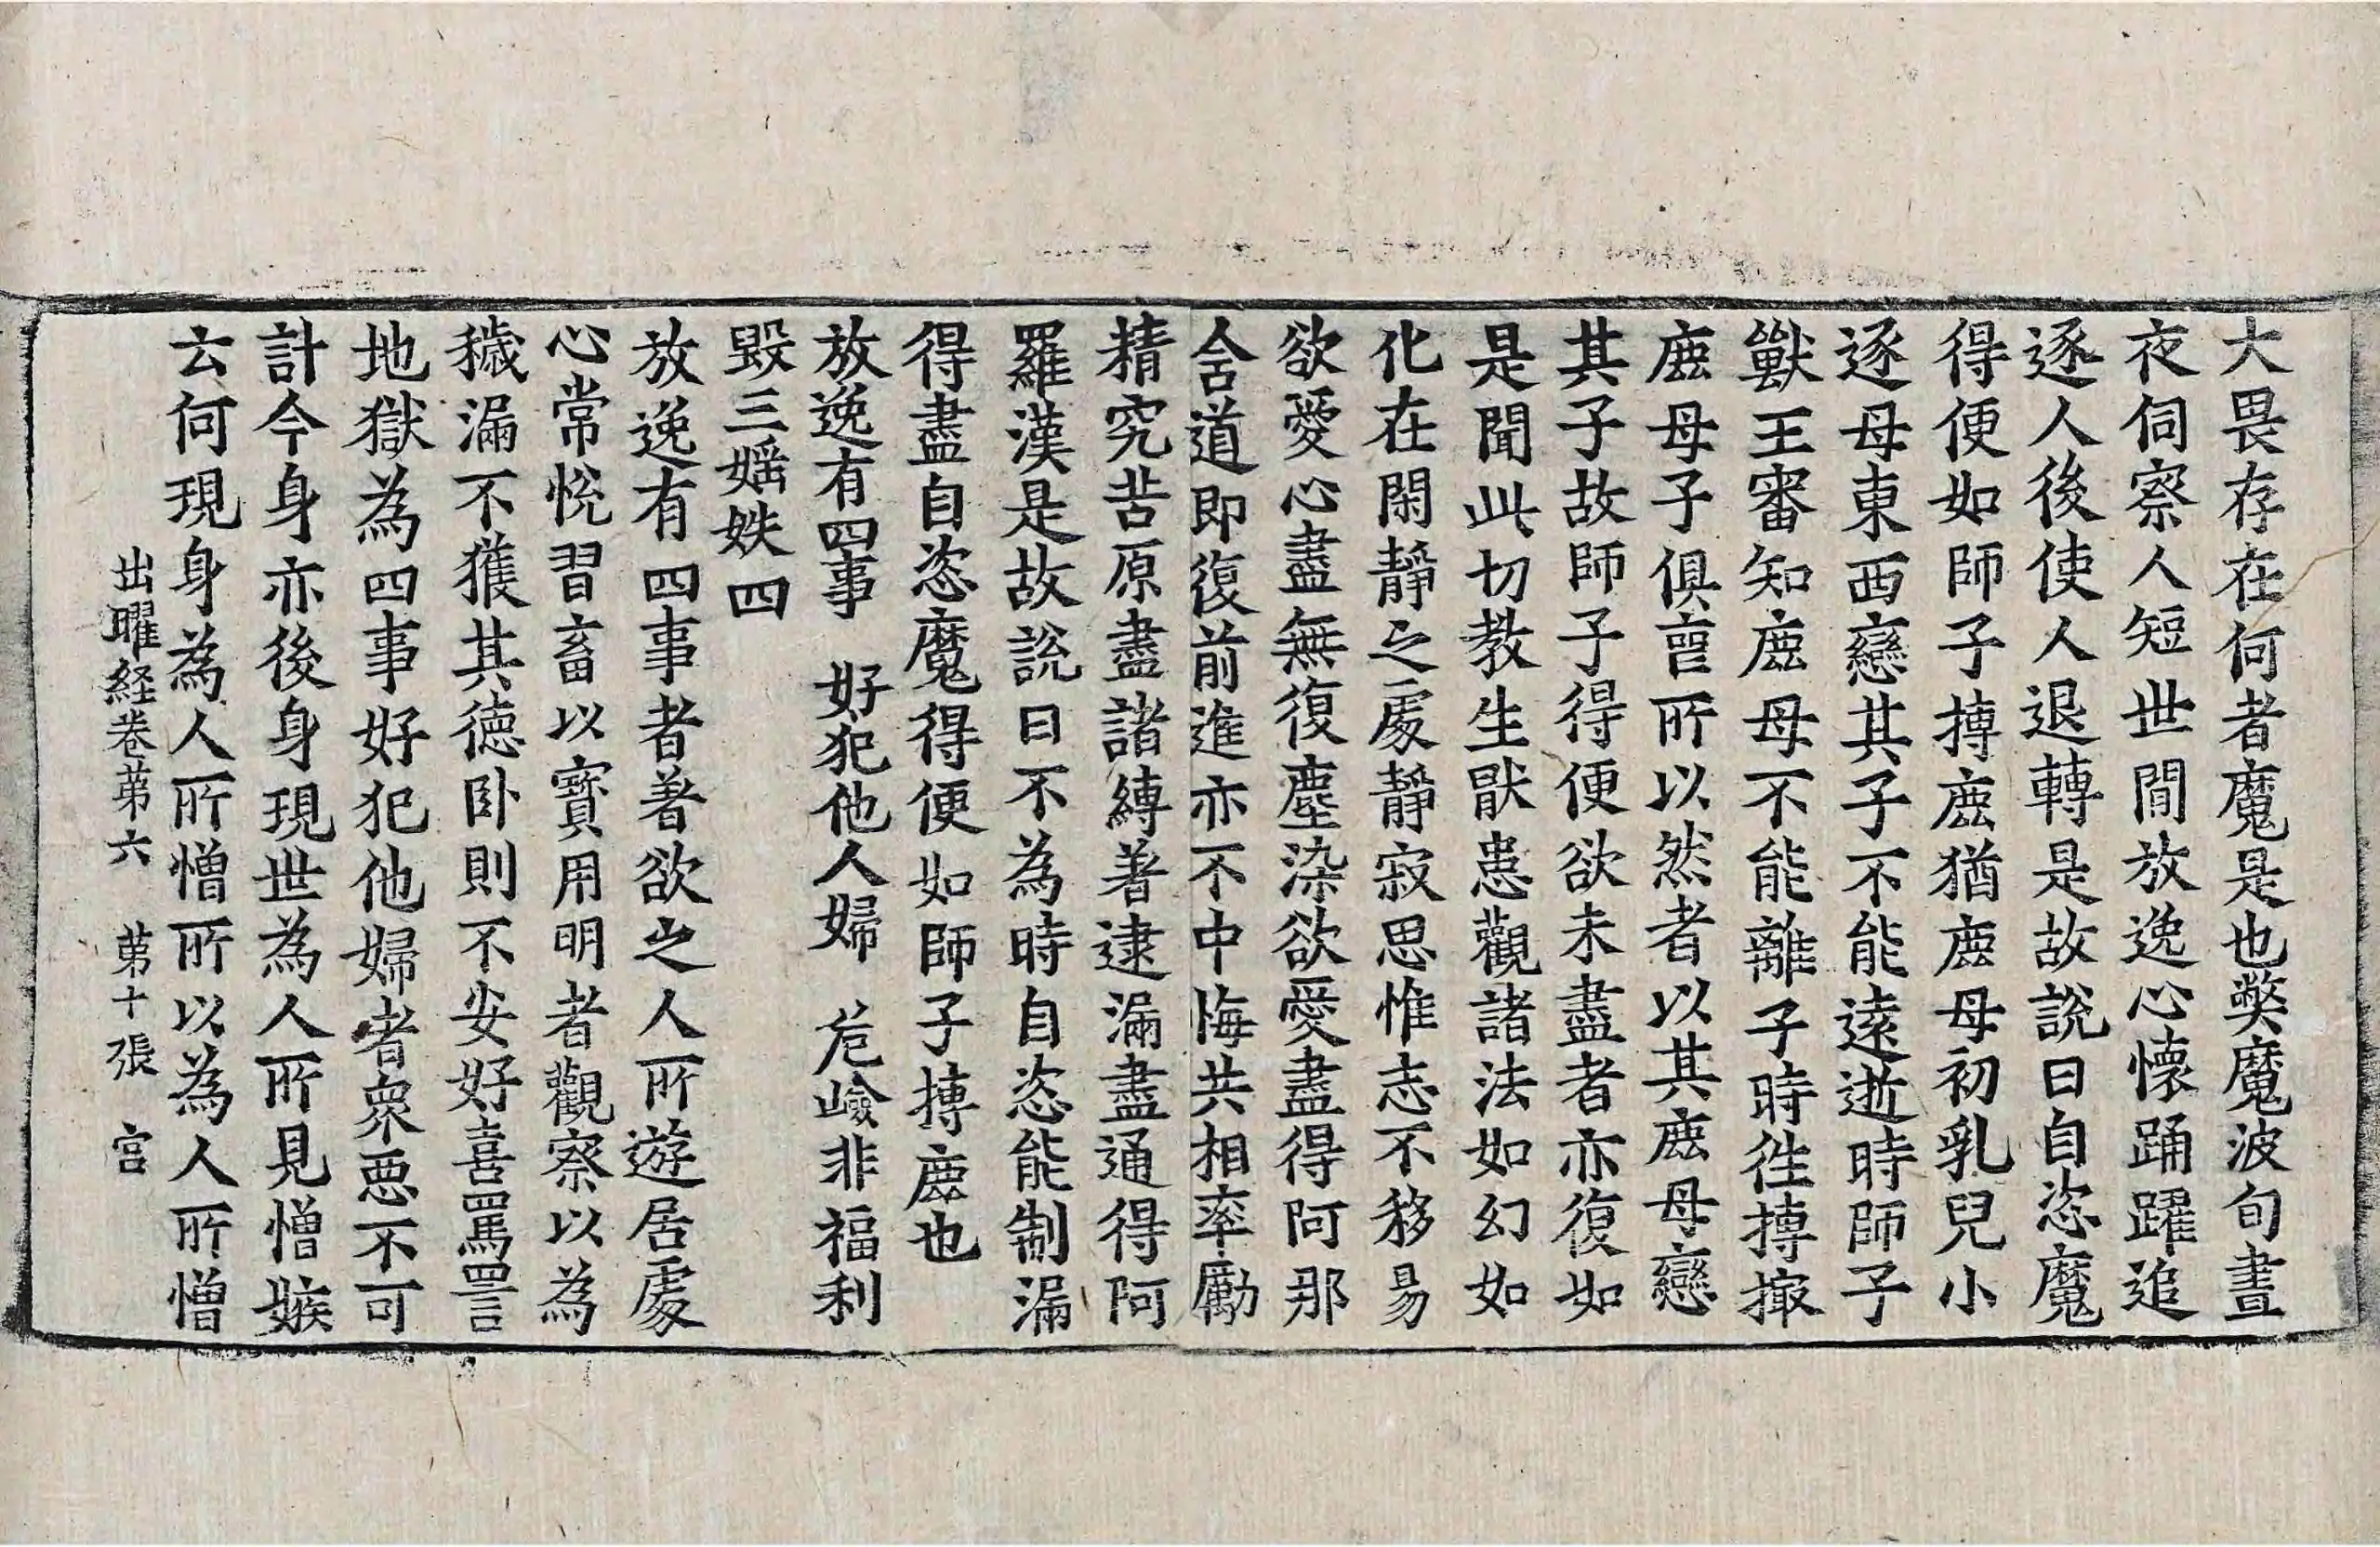 大畏存在何者魔是也弊魔波旬晝
夜伺察人短世間放逸心懷踊躍追
逐人後使人退轉是故說曰自恣魔
得便如師子搏鹿猶鹿母初乳兒小
逐母東西戀其子不能遠逝時師子
獸王審知鹿母不能離子時往搏撮
鹿母子俱喪所以然者以其鹿母戀
其子故師子得便欲未盡者亦復如
是聞此切教生猒患觀諸法如幻如
化在閑靜之處靜寂思惟志不移易
欲愛心盡無復塵染欲愛盡得阿那
含道即復前進亦不中悔共相率勵
精究苦原盡諸縛著逮漏盡通得阿
羅漢是故說曰不為時自恣能制漏
得盡自恣魔得便如師子搏鹿也
放逸有四事　好犯他人婦　危嶮非福利
毀三婬妷四
放逸有四事者著欲之人所遊居處
心常悅習畜以寶用明者觀察以為
穢漏不獲其德臥則不安好喜罵詈
地獄為四事好犯他婦者眾惡不可
計今身亦後身現世為人所見憎嫉
云何現身為人所憎所以為人所憎
出曜経卷第六　第十張　宮